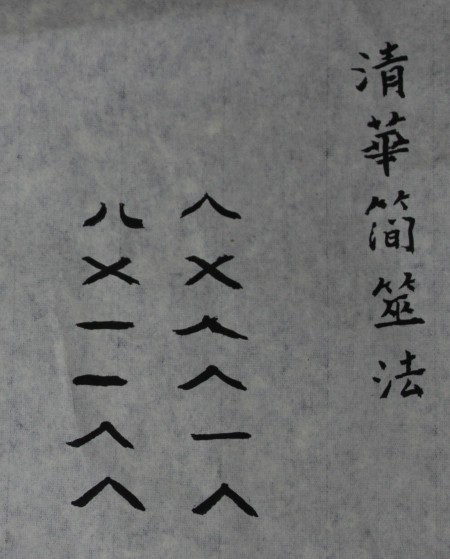 清華簡筮法
∧㐅∧∧一∧
八㐅一一∧∧